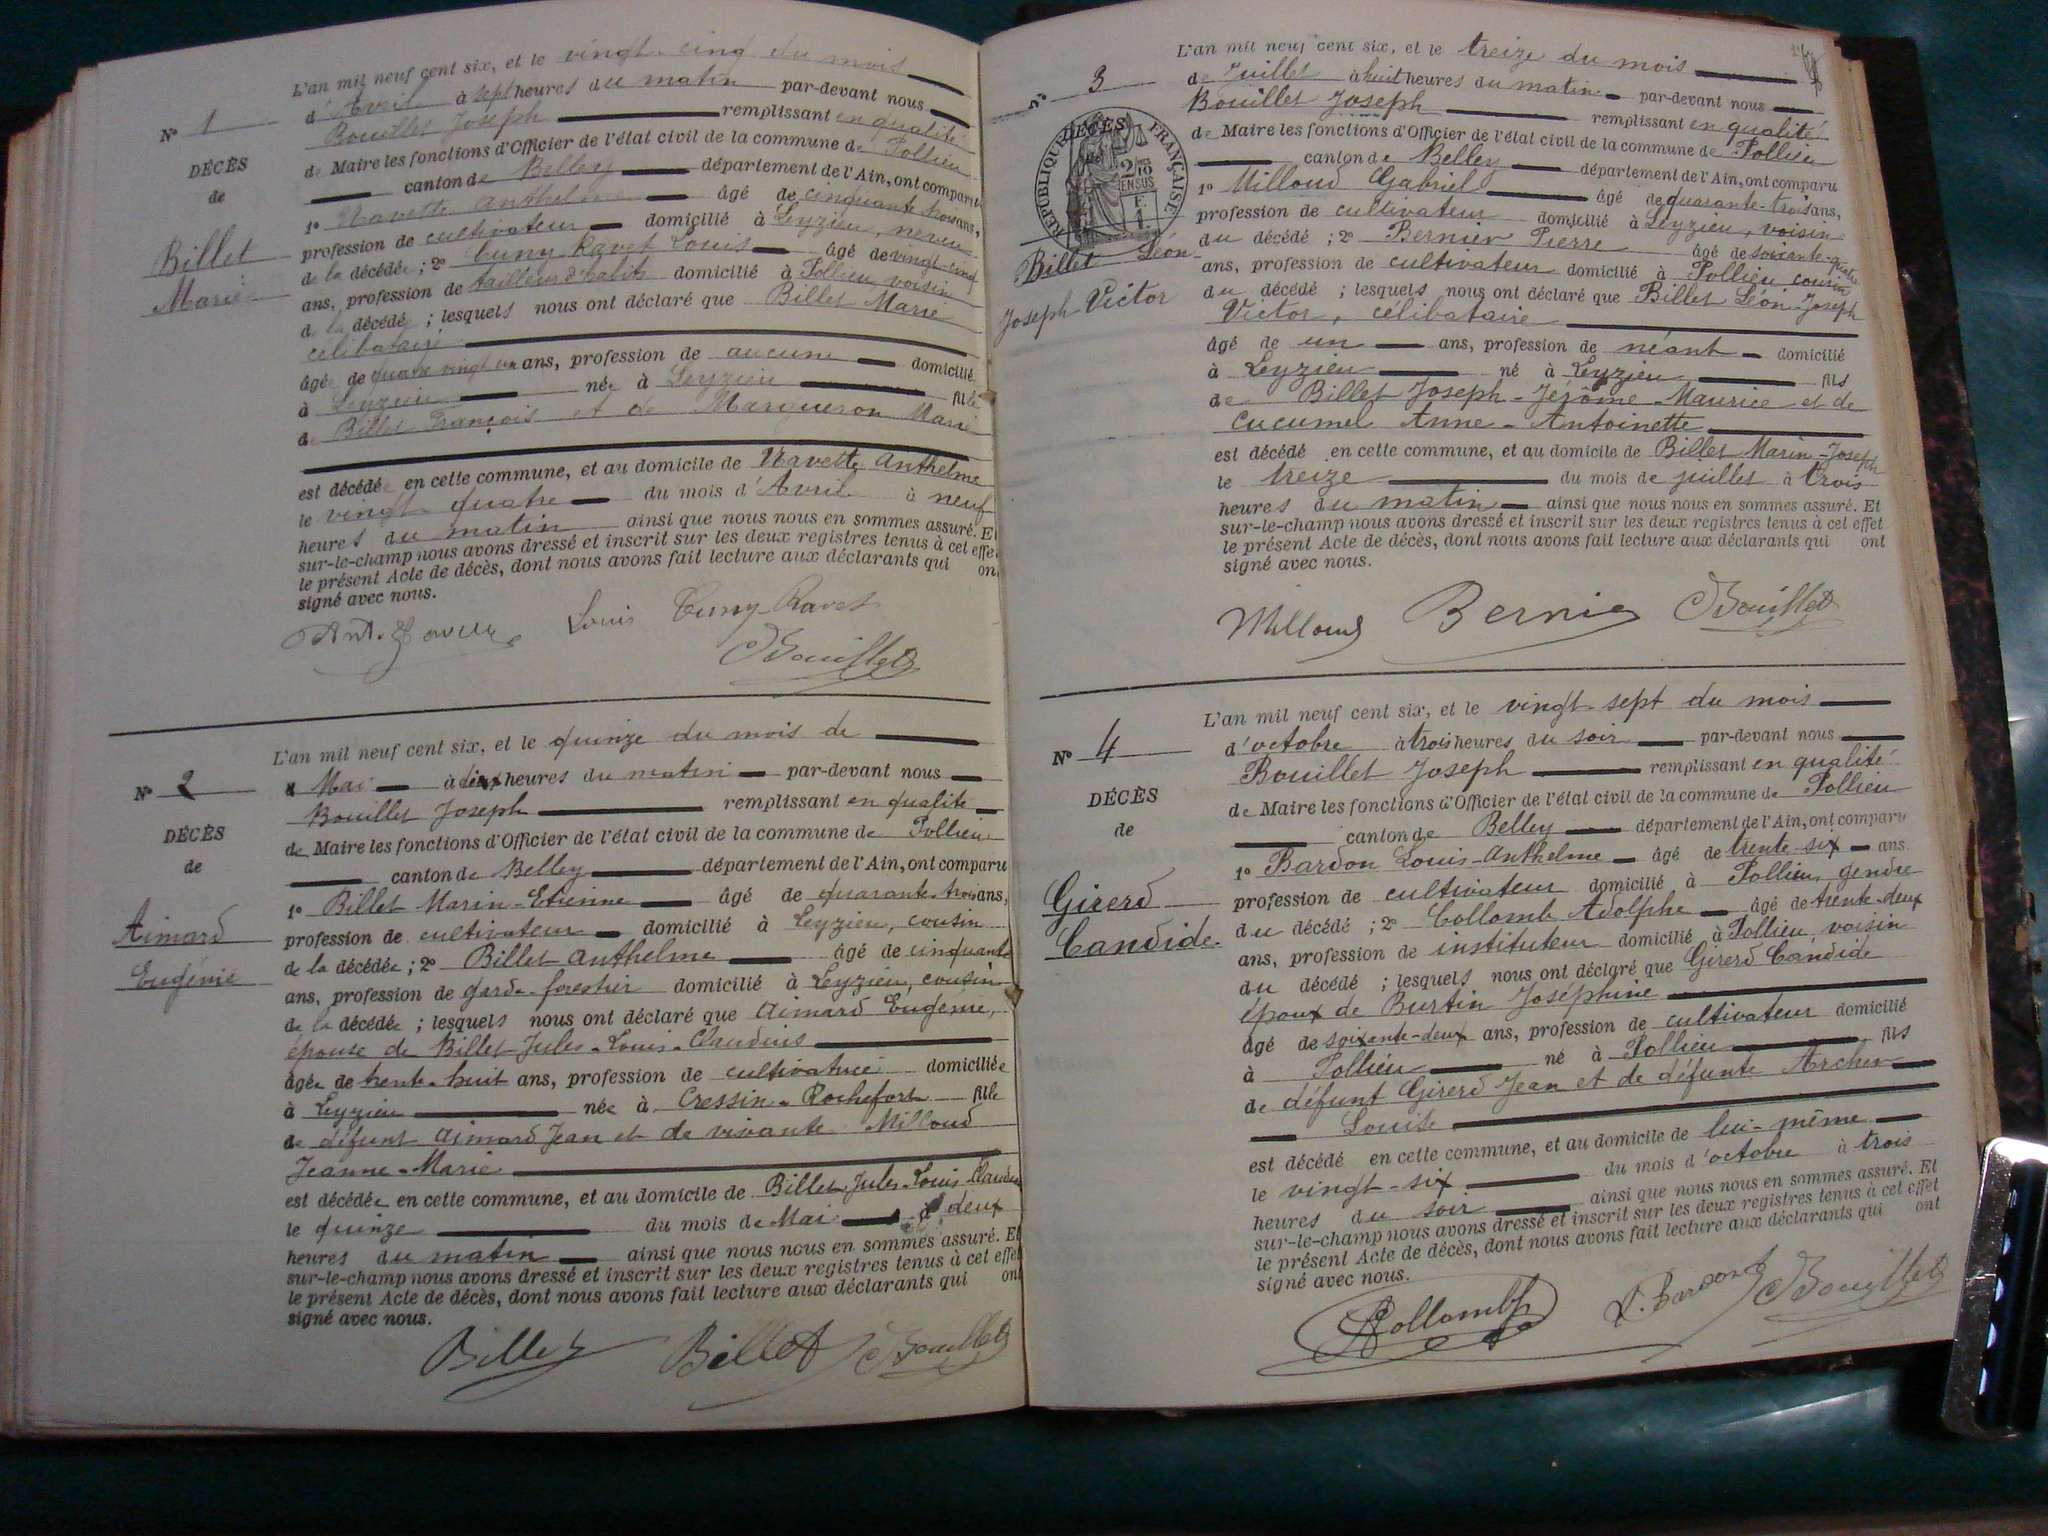 L'an mil neuf cent six, et le vingt-cinq du mois
N° 1
d'Avril à sept heures du matin par-devant nous
Bouillet Joseph remplissant en qualité
DÉCÈS
de Maire les fonctions d'Officier de l'état civil de la commune de Pollieu
de
canton de Belley département de l'Ain, ont comparu
1° Navette Anthelme âgé de cinquante trois ans,
profession de cultivateur domicilié à Leyzieu, neveu
Billet
de la décédée; 2° Cuny Ravet Louis âgé de vingt-cinq
Marie
ans, profession de tailleur d'habits domicilié à Pollieu, voisin
de la décédée; lesquels nous ont déclaré que Billet Marie
célibataire
âgée de quatre vingt un ans, profession de aucune domiciliée
à Leyzieu née à Leyzieu fille
de Billet François et de Margueron Marie
est décédée en cette commune, et au domicile de Navette Anthelme
le vingt quatre du mois d'Avril à neuf
heures du matin ainsi que nous nous en sommes assuré. Et
sur-le-champ nous avons dressé et inscrit sur les deux registres tenus à cet effet
le présent Acte de décès, dont nous avons fait lecture aux déclarants qui ont
signé avec nous.
Louis Cuny-Ravet
Bouillet
L'an mil neuf cent six, et le quinze du mois de
N° 2
Mai à dix heures du matin par-devant nous
Bouillet Joseph remplissant en qualité
DÉCÈS
de Maire les fonctions d'Officier de l'état civil de la commune de Pollieu
de
canton de Belley département de l'Ain, ont comparu
1° Billet Marin-Etienne âgé de quarante-trois ans,
Aimard
profession de cultivateur domicilié à Leyzieu, cousin
Eugénie
de la décédée; 2° Billet Anthelme âgé de cinquante
ans, profession de garde forestier domicilié à Leyzieu, cousin
de la décédée; lesquels nous ont déclaré que Aimard Eugénie,
épouse de Billet Jules-Louis-Claudius
âgée de trente-huit ans, profession de cultivatrice domiciliée
à Leyzieu née à Cressin-Rochefort fille
de défunt Aimard Jean et de vivante Milloud
Jeanne-Marie
est décédée en cette commune, et au domicile de Billet Jules-Louis-Claudius
le quinze du mois de Mai à deux
heures du matin ainsi que nous nous en sommes assuré. Et
sur-le-champ nous avons dressé et inscrit sur les deux registres tenus à cet effet
le présent Acte de décès, dont nous avons fait lecture aux déclarants qui ont
signé avec nous.
Billet Billet Bouillet
L'an mil neuf cent six, et le treize du mois
N° 3
de Juillet à huit heures du matin par-devant nous
Bouillet Joseph remplissant en qualité
DÉCÈS
de
RÉPUBLIQUE FRANÇAISE
2/10 EN SUS
F. 1.
de Maire les fonctions d'Officier de l'état civil de la commune de Pollieu
canton de Belley département de l'Ain, ont comparu
1° Milloud Gabriel âgé de quarante-trois ans,
profession de cultivateur domicilié à Leyzieu, voisin
Billet Léon-
Joseph Victor
du décédé; 2° Bernier Pierre âgé de soixante-quatre
ans, profession de cultivateur domicilié à Pollieu cousin
du décédé; lesquels nous ont déclaré que Billet Léon-Joseph
Victor, célibataire
âgé de un ans, profession de néant domicilié
à Leyzieu né à Leyzieu fils
de Billet Joseph-Jérôme-Maurice et de
Cucumel Anne-Antoinette
est décédé en cette commune, et au domicile de Billet Marin-Joseph
le treize du mois de juillet à trois
heures du matin ainsi que nous nous en sommes assuré. Et
sur-le-champ nous avons dressé et inscrit sur les deux registres tenus à cet effet
le présent Acte de décès, dont nous avons fait lecture aux déclarants qui ont
signé avec nous.
Milloud Bernier Bouillet
L'an mil neuf cent six, et le vingt-sept du mois
N° 4
d'octobre à trois heures du soir par-devant nous
Bouillet Joseph remplissant en qualité
DÉCÈS
de Maire les fonctions d'Officier de l'état civil de la commune de Pollieu
de
canton de Belley département de l'Ain, ont comparu
1° Bardon Louis-Anthelme âgé de trente-six ans
Girerd
profession de cultivateur domicilié à Pollieu, gendre
Candide
du décédé; 2° Collomb Adolphe âgé de trente-deux
ans, profession de instituteur domicilié à Pollieu, voisin
du décédé; lesquels nous ont déclaré que Girerd Candide
époux de Burtin Joséphine
âgé de soixante-deux ans, profession de cultivateur domicilié
à Pollieu né à Pollieu fils
de défunt Girerd Jean et de défunte Archer
Louise
est décédé en cette commune, et au domicile de lui-même
le vingt-six du mois d'octobre à trois
heures du soir ainsi que nous nous en sommes assuré. Et
sur-le-champ nous avons dressé et inscrit sur les deux registres tenus à cet effet
le présent Acte de décès, dont nous avons fait lecture aux déclarants qui ont
signé avec nous.
ACollomb L. Bardon Bouillet